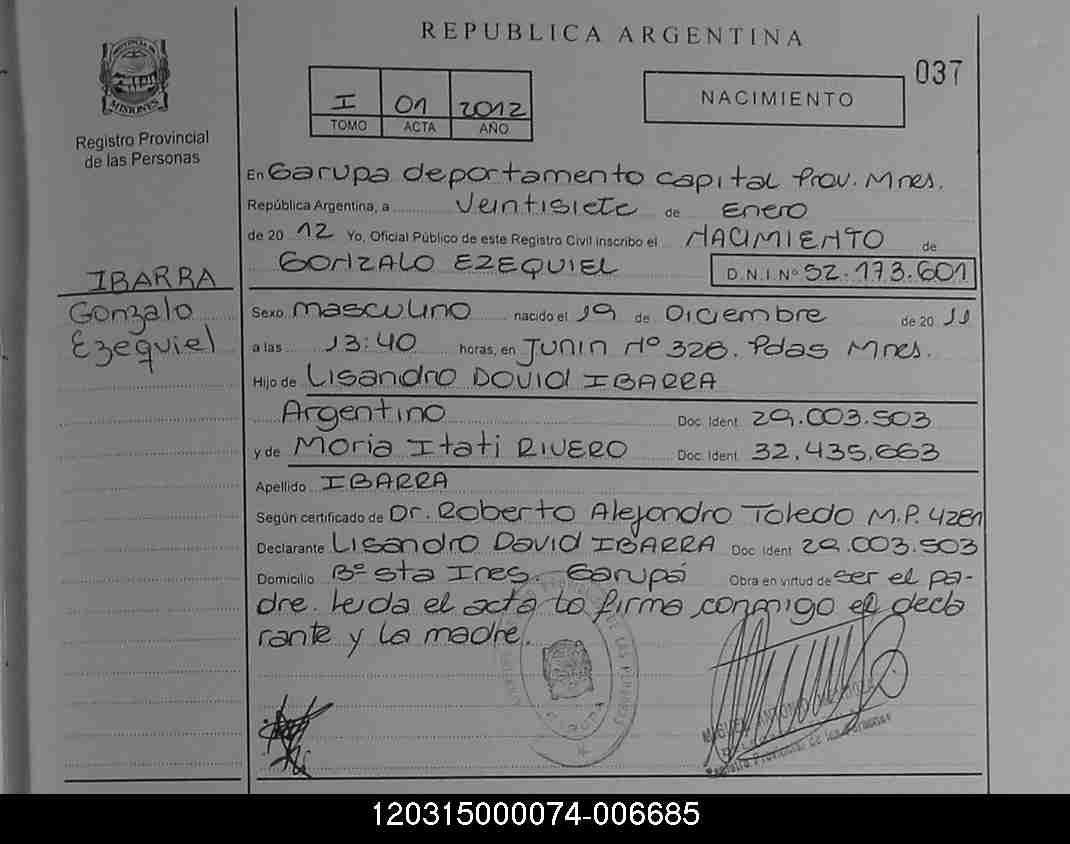 REPUBLICA ARGENTINA
037
PROVINCIA DE
MISIONES
Registro Provincial
de las Personas
I 01 2012
TOMO ACTA AÑO
NACIMIENTO
En Garupa departamento capital Prov. Mnes.
República Argentina, a veintisiete de Enero
de 2012 Yo, Oficial Público de este Registro Civil inscribo el NACIMIENTO de
GONZALO EZEQUIEL D.N.I.Nº 52.173.601
IBARRA
Gonzalo
Ezequiel
Sexo masculino nacido el 19 de Diciembre de 2011
a las 13:40 horas, en Junin Nº 328. Pdas Mnes.
Hijo de Lisandro David IBARRA
Argentino Doc. Ident. 29.003.503
y de Maria Itati RIVERO Doc. Ident. 32.435.663
Apellido IBARRA
Según certificado de Dr. Roberto Alejandro Toledo M.P. 4281
Declarante Lisandro David IBARRA Doc Ident 29.003.503
Domicilio Bº sta Ines. Garupá Obra en virtud de ser el pa-
dre. leida el acta la firma conmigo el decla
rante y la madre.
DE LAS PERSONAS
MIGUEL ANTONIO
Registro Provincial de las Personas
120315000074-006685